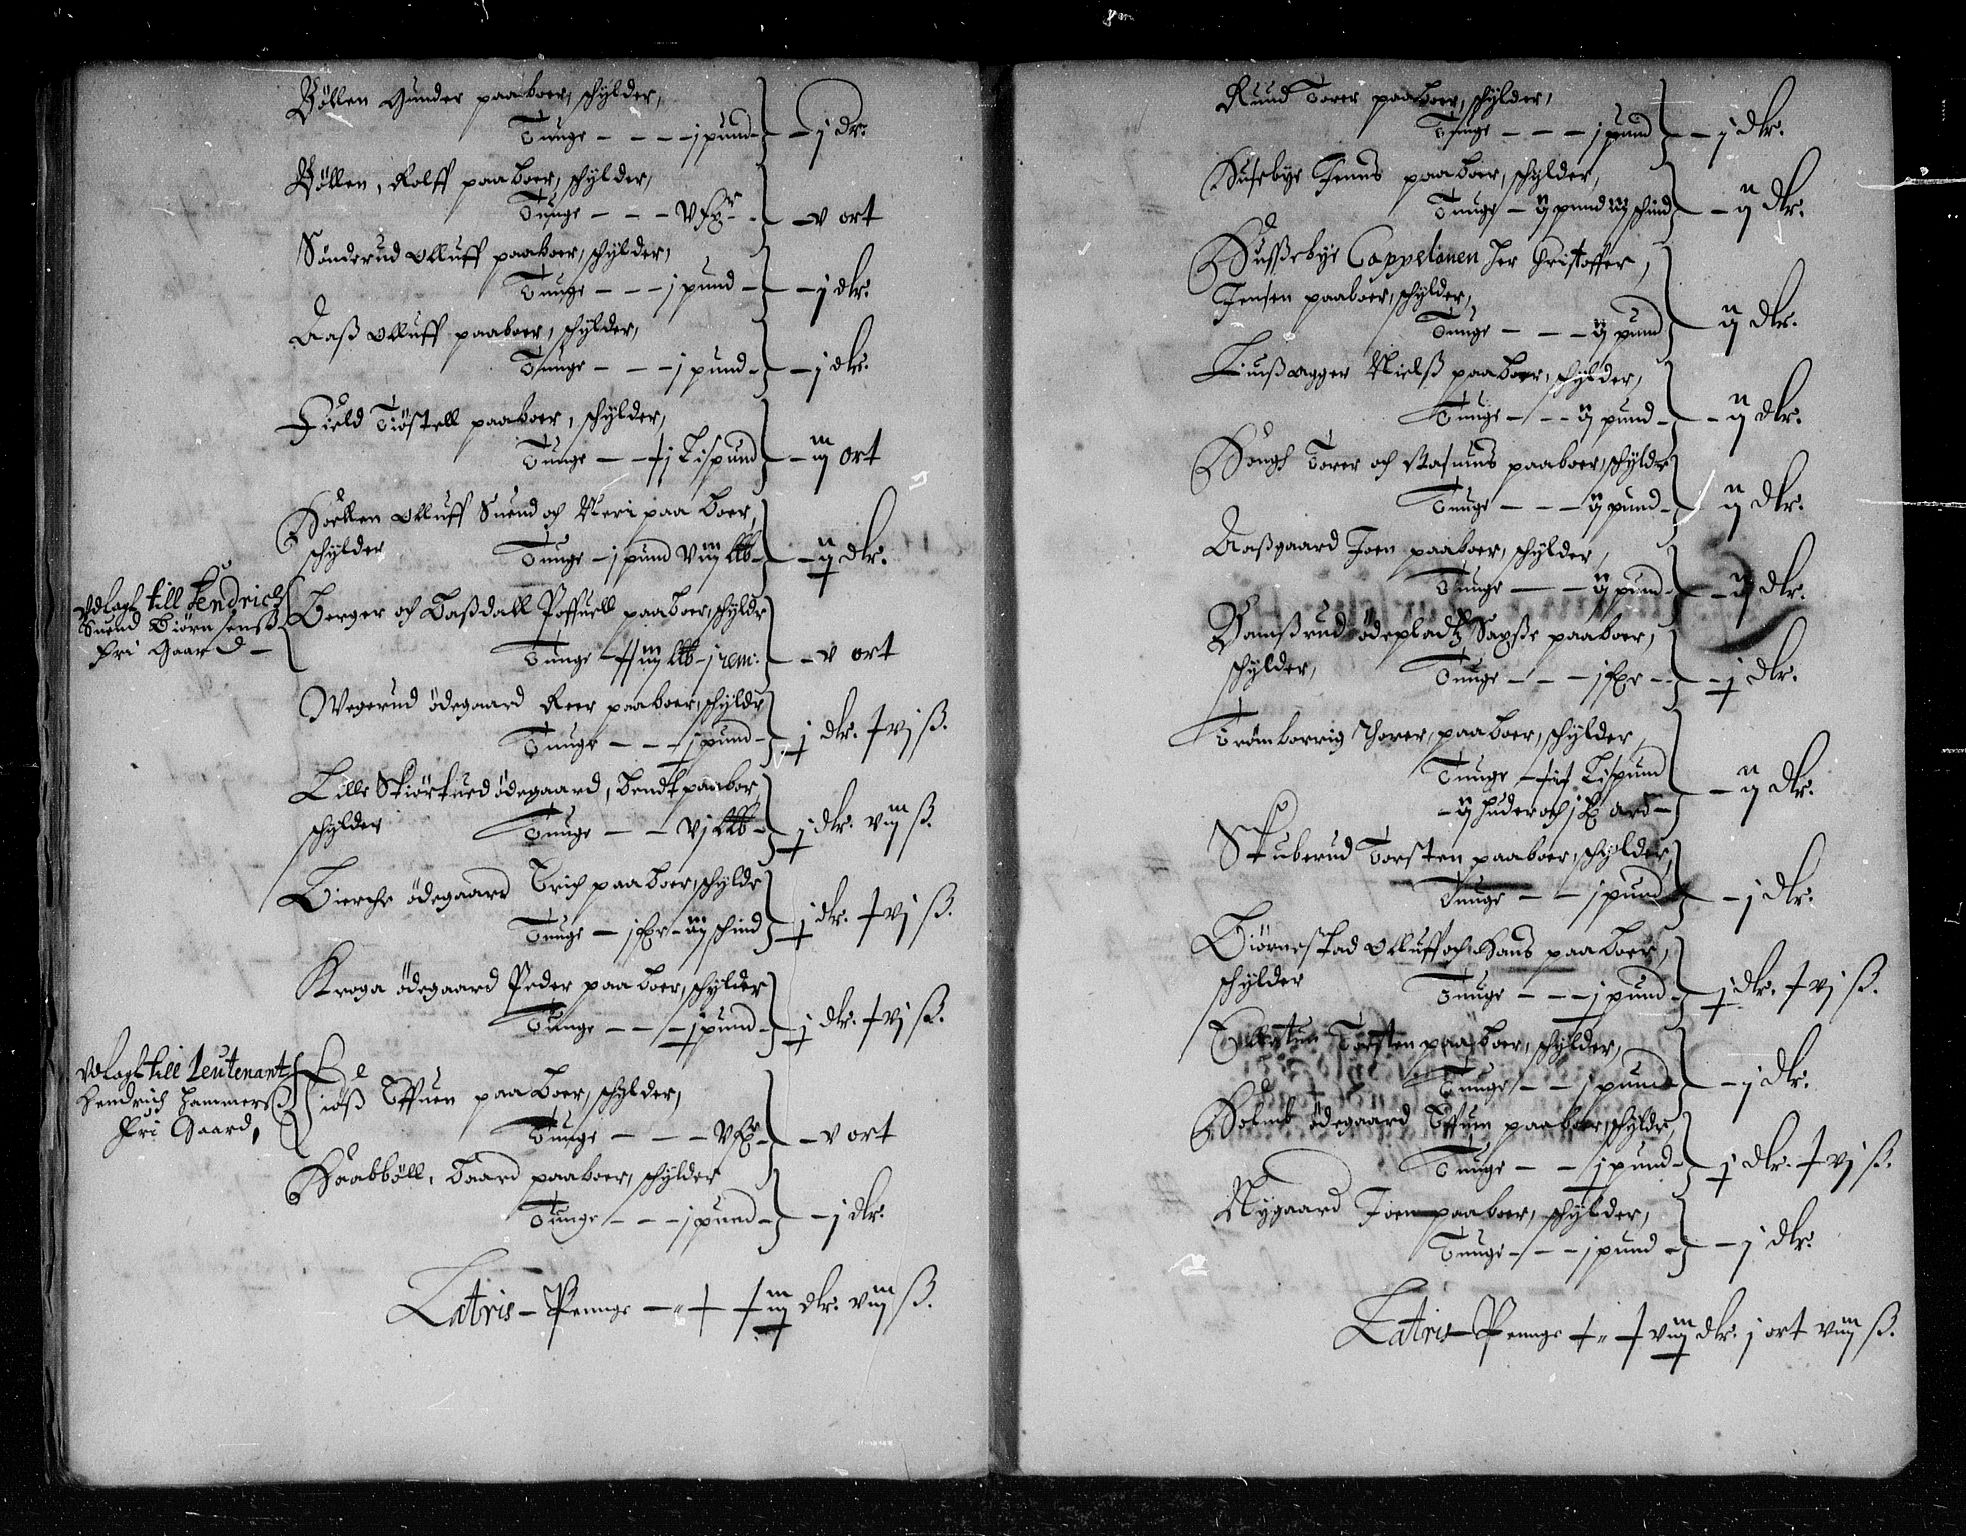 Böllen Gunder paaboer, schÿlder,
Tunge - - - - j pund - - j dr.
Böllen, Rolff paaboer, schÿlder,
Tunge - - - V fr - - v ort
Sönderud olluff paaboer, schÿlder,
Tunge - - - j pund - - j dlr.
Aaß olluff paaboer, schÿlder,
Tunge - - - j pund - - j dlr.
Field Tiöstell paaboer, schÿlder,
Tunge - - j Lispund - iij ort
Hoellen olluff Suend och paa boer,
schÿlder Tunge - j pund viij Lb - - ij dlr.
Vdlagt till Hendrich
Suend Biörnsenß
Fri Gaard -
Berger och Baßdall paaboer, schÿldr
Tunge - Lb - j rem. - v ort
Wegerud ödegaard Reer paaboer, schÿldr
Tunge - - - j pund - j dlr. vj ß.
Lille ödegaard, bendt paabor
schÿlder Tunge - - vj Lb - j dlr. viij ß.
Bierche ödegaard Erich paaboer, schÿldr
Tunge - j fr - iij schind j dlr. vj ß.
Kroga ödegaard Peder paaboer, schÿlder
Tunge - - - j pund - j dlr. vj ß.
Vdlagt till Leutenant
Hendrich Hammerß
Fri Gaard,
Be
iöß Effuen paaboer, schÿlder,
Tunge - - - V fr - - v ort
Haabböll, Baard paaboer, schÿlder
Tunge - - - j pund - - j dlr.
Latris - Penge - dlr. viij ß.
Ruud Torer paaboer, schÿlder,
Tunge - - - j pund - j dlr.
Husebye Jenns paaboer, schÿlder,
Tunge - ij pund iij schind - ij dlr.
Hußebye Cappelanen Her Christoffer,
Jensen paaboer, schÿlder,
Tunge - - - ij pund - ij dlr.
Liußagger Nielß paaboer, schÿlder,
Tunge - - - ij pund - - ij dlr.
Hough Torer och Rasmus paaboer, schÿldr
Tunge - - - ij pund - ij dlr.
Aaßgaard Joen paaboer, schÿlder,
Tunge - - ij pund - - ij dlr.
Ramßrud ödepladtz paaboer,
schÿlder, Tunge - - - j fr - - j dlr.
Trömborrig Thorer, paaboer, schÿlder,
Tunge - Lispund
- ij huder och j ard - - ij dlr.
Skuberud Torsten paaboer, schÿlder,
Tunge - - j pund - j dlr.
Biörnestad olluff och Hans paaboer,
schÿlder Tunge - - - j pund - j dlr. vj ß.
Torsten paaboer, schÿlder,
Tunge - - j pund - j dlr.
Holmb ödegaard paaboer, schÿldr,
Tunge - - j pund - j dlr. vj ß.
Nygaard Joen paaboer, schÿlder,
Tunge - - - j pund - - j dlr.
Latris - Penge viij dlr. j ort viij ß.